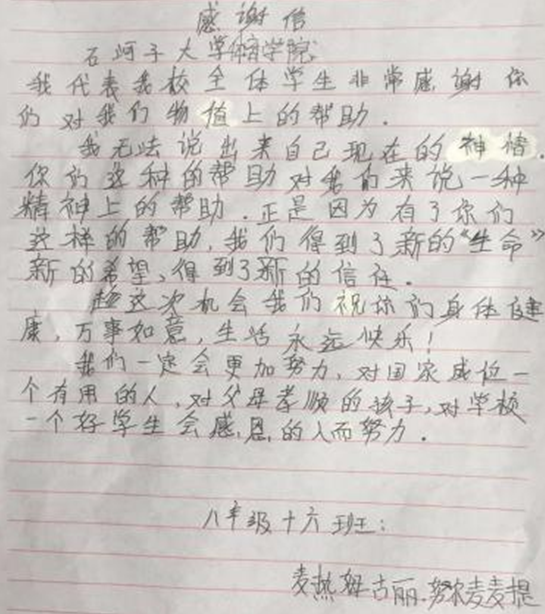 感谢信
石河子大学体育学院
我代表我校全体学生非常感谢你
们对我们物值上的帮助.
我无法说出来自己现在的神情.
你们这种的帮助对我们来说一种
精神上的帮助.正是因为有了你们
这样的帮助,我们得到了新的“生命”
新的希望,得到了新的信任.
趁这次机会我们祝你们身体健
康,万事如意,生活永远快乐!
我们一定会更加努力,对国家成位一
个有用的人,对父母孝顺的孩子,对学校
一个好学生会感恩的人而努力.
八年级十六班:
麦热姆古丽.努尔麦麦提